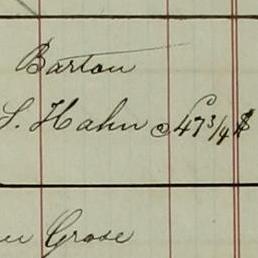 Barton
S. Hahn c £47 3/4 $
Grose